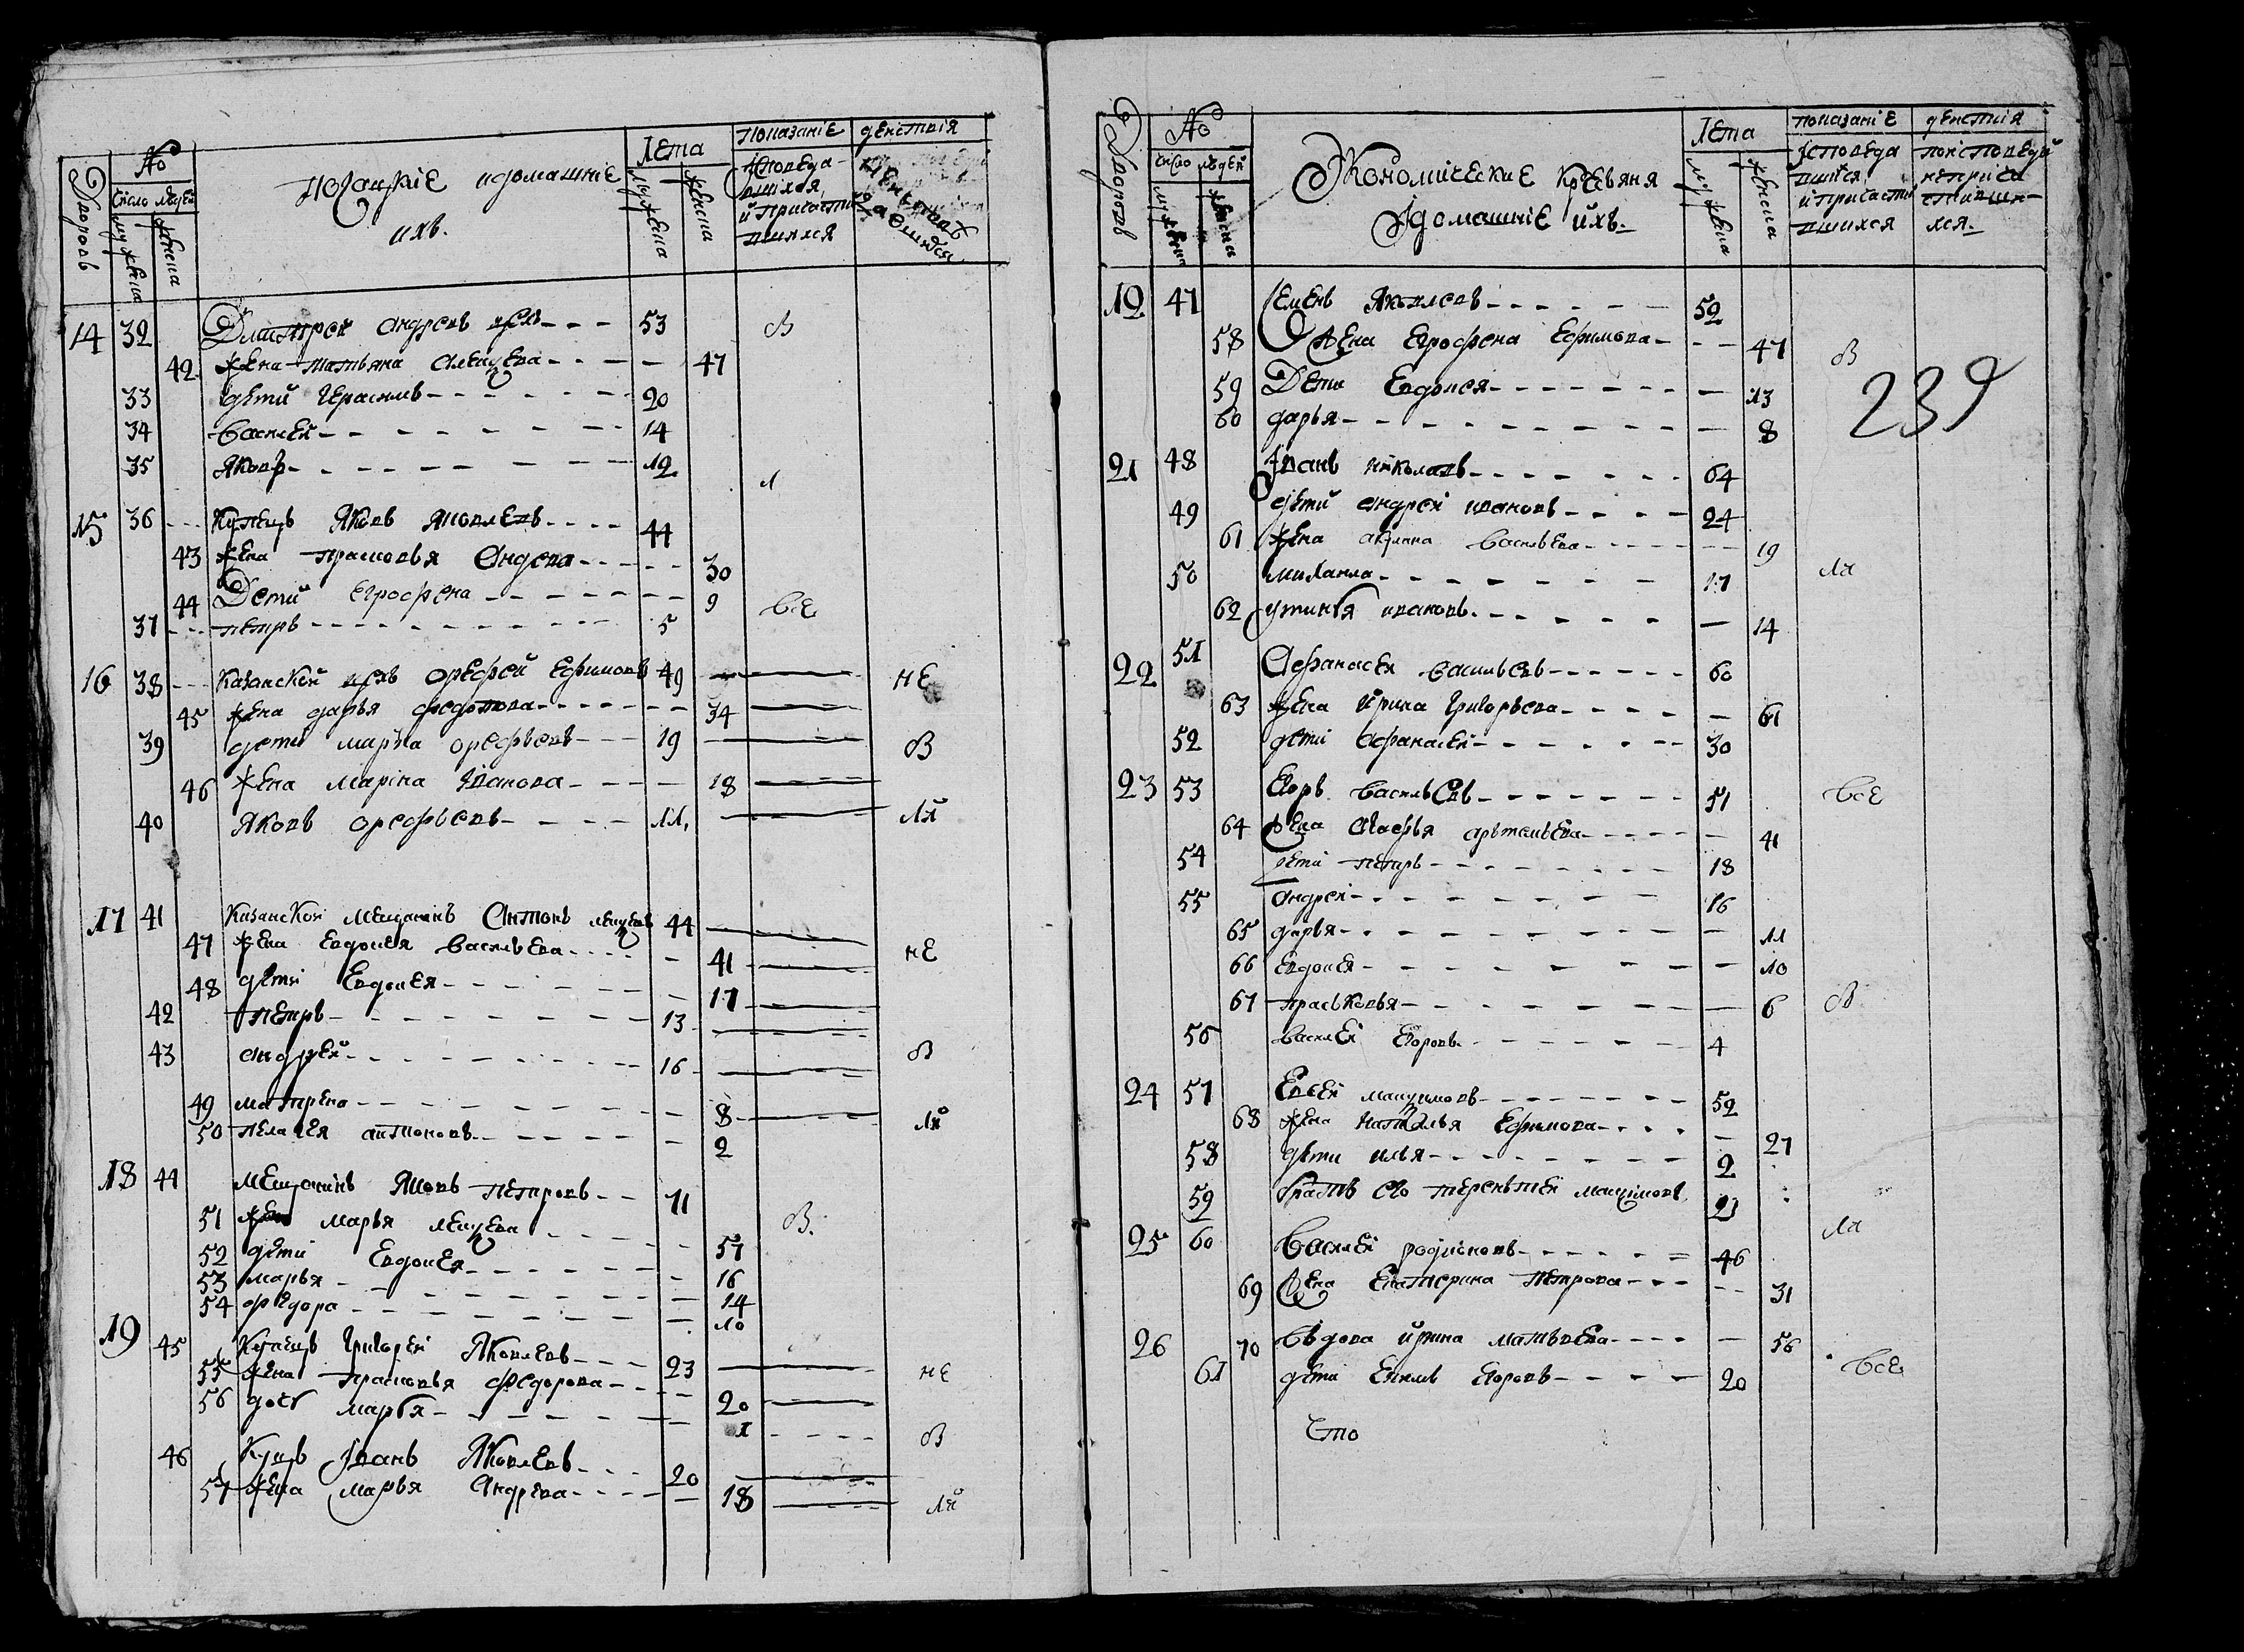 No
Дворовъ
Число людей
мужеска
женска
Посацкіе идомашніе
ихъ.
Лета
мужеска
женска
показаніе действія
Исповеда-
вшихся
и причасти
вшихся
не бывшихъ
14 32 Дмитрей Андреевъ 53 в
42 жена татьяна 47
33 дети Герасимъ 20
34 василей 14
35 яковъ 12 л
15 36 Купецъ яковъ яковлевъ 44
43 жена прасковья Андеева 30
44 Дети 9 все
37 петръ 5
16 38 Казанской орефей Ефимовъ 49 не
45 жена дарья федотова 34
39 дети орефьевъ 19 в
46 жена марина Иванова 18
40 яковъ орефьевъ 11 ля
17 41 Казанской мещанинъ Антонъ 44
47 жена Евдокея васильева 41 не
48 дети Евдокея 17
42 петръ 13
43 андрей 16 в
49 матрена 8
50 пелагея антоновъ 2 ля
18 44 Мещанинъ яковъ петровъ 71
51 жена марья 57 в
52 дети Евдокея 16
53 марья 14
54 федора 10
19 45 Купецъ Григорей яковлевъ 23 не
55 жена прасковья федорова 20
56 дочь марья 1 в
46 Купецъ Иванъ яковлевъ 20
57 жена марья Андреева 18 ля
Дворовъ
No
число людей
мужеска
женска
Экономические кресьяня
Идомашніе ихъ.
Лета
мужеска
женска
показаніе действія
Исповеда
вшися
и причасти
вшихся
поисповеди
неприча
стивши-
хся.
19 47 Семенъ яковлевъ 52
58 Жена Ефимова 47 в
59 Дети Евдокея 13
239
60 дарья 8
21 48 Иванъ николаевъ 64
49 дети андрей ивановъ 24
61 жена акулина васильева 19
50 михаила 17 ля
62 устинья ивановъ 14
22 51 Афанасея васильевъ 60
63 жена ирина григорьева 61
52 дети афанасей 30
23 53 Егоръ васильевъ 51 все
64 жена агафья артемьева 41
54 дети петръ 18
55 андрей 16
65 дарья 11
66 Евдокея 10
67 праськовья 6 в
56 василей Егоровъ 4
24 57 Евсей максимовъ 52
68 жена наталья Ефимова 27
58 дети илья 2
59 братъ его терентей максимовъ 23
25 60 василей родионовъ 46 ля
69 жена Екатерина петрова 31
26 70 въдова ирина матвеева 56
61 дети Егоровъ 20 все